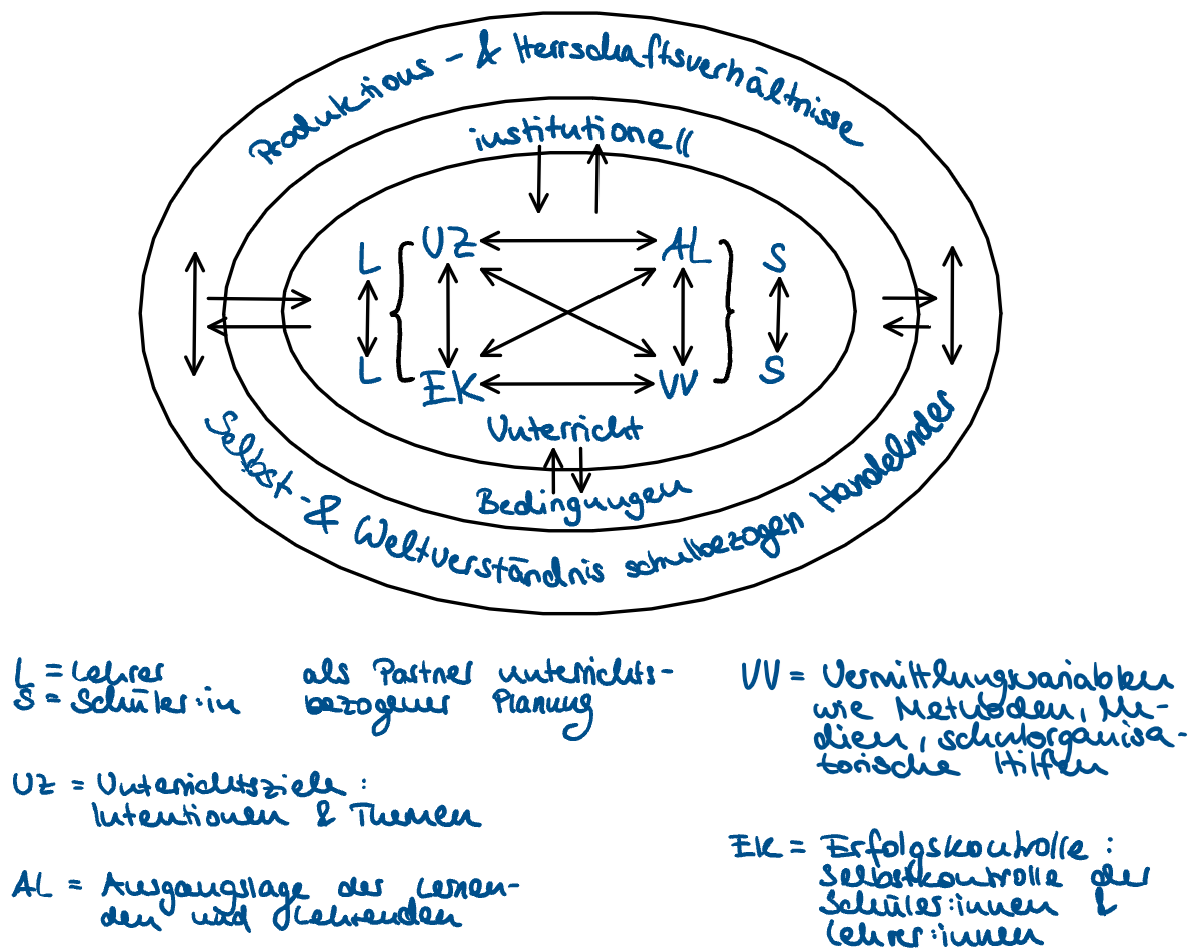 Produktions- & Herrschaftsverhältnisse
institutionell
L UZ AL S
L EK VV S
Unterricht
Bedingungen
Selbst- & Weltverständnis schulbezogen Handelnder
L = Lehrer als Partner unterrichts-
S = Schüler:in bezogener Planung
UZ = Unterrichtsziele:
Intentionen & Themen
AL = Ausgangslage der Lernen-
den und Lehrenden
VV = Vermittlungsvariablen
wie Methoden, Me-
dien, schulorganisa-
torische Hilfen
EK = Erfolgskontrolle:
Selbstkontrolle der
Schüler:innen &
Lehrer:innen